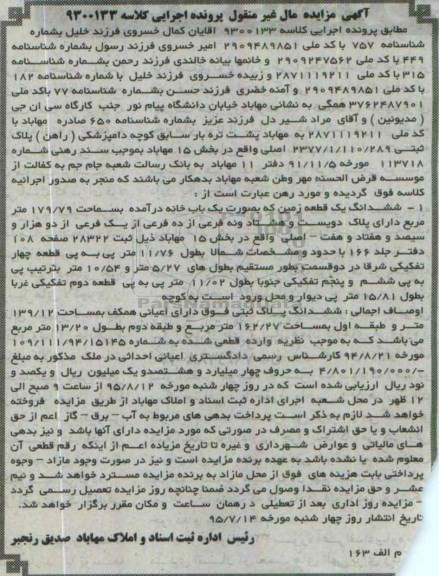 آگهی مزایده مال غیر منقول پرونده اجرایی کلاسه ۹۳۰۰۱۳۳
مطابق پرونده اجرایی کلاسه ۹۳۰۰۱۳۳ آقایان کمال خسروی فرزند خلیل بشماره
شناسنامه ۷۵۷ با کد ملی ۲۹۰۹۴۸۹۸۵۱ امیر خسروی فرزند رسول بشماره شناسنامه
۴۴۹ با کد ملی ۲۹۰۹۲۴۷۵۶۲ و خانمها بیانه خالندی فرزند رحمن بشماره شناسنامه
۳۱۵ با کد ملی ۲۸۷۱۱۱۹۲۱۱ و زبیده خسروی فرزند خلیل با شماره شناسنامه ۱۸۲
با کد ملی ۲۹۰۹۴۸۹۸۵۱ و آمنه خضری فرزند حسن بشماره شناسنامه ۷۷ باکد ملی
۳۷۶۲۴۸۷۹۰۱ همگی به نشانی مهاباد خیابان دانشگاه پیام نور جنب کارگاه سی ان جی
( مدیونین ) و آقای مراد شیر دل فرزند عزیز بشماره شناسنامه ۶۵۰ صادره مهاباد با
کد ملی ۲۸۷۱۱۱۹۲۱۱ به مهاباد پشت تره بار سابق کوچه دامپزشکی ( راهن ) پلاک
ثبتی ۲۳۷۷/۱/۱۱۰/۲۸۹ اصلی واقع در بخش ۱۵ مهاباد بموجب سند رهنی شماره
۱۱۳۷۱۸ مورخه ۹۱/۱۱/۵ دفتر ۱۱ مهاباد به بانک رسالت شعبه جام جم به کفالت از
موسسه قرض الحسنه مهر وطن شعبه مهاباد بدهکار می باشند که منجر به صدور اجرائیه
کلاسه فوق گردیده و مورد رهن عبارت است از :
۱ - ششدانگ یک قطعه زمین که بصورت یک باب خانه درآمده بمساحت ۱۷۹/۷۹ متر
مربع دارای پلاک دویست و هشتاد ونه فرعی از ده فرعی از یک فرعی از دو هزار و
سیصد و هفتاد و هفت - اصلی واقع در بخش ۱۵ مهاباد ذیل ثبت ۲۸۳۲۲ صفحه ۱۰۸
دفتر جلد ۱۶۶ با حدود و مشخصات شمالا بطول ۱۱/۷۶ متر پی به پی قطعه چهار
تفکیکی شرقا در دوقسمت بطور مستقیم بطول های ۵/۲۷ متر و ۱۰/۵۴ متر بترتیب پی
به پی ششم و پنجم تفکیکی جنوبا بطول ۱۱/۰۲ متر پی به پی قطعه دوم تفکیکی غربا
بطول ۱۵/۸۱ متر پی دیوار و محل ورود است به کوچه
اوصاف اجمالی : ششدانگ پلاک ثبتی فوق دارای اعیانی همکف بمساحت ۱۳۹/۱۲
متر و طبقه اول بمساحت ۱۶۲/۲۷ متر مربع و طبقه دوم بطول ۱۳/۲۰ متر مربع
می باشد که به موجب نظریه وارده قطعی شده به شماره ۱۰۹/۱۱۱/۹۴/۱۵۱۴۵
مورخه ۹۴/۸/۲۱ کارشناس رسمی دادگستری اعیانی احداثی در ملک مذکور به مبلغ
۴/۸۰۱/۱۹۰/۰۰۰- به حروف چهار میلیارد و هشتصدو یک میلیون ریال و یکصد و
نود ریال ارزیابی شده است که در روز چهار شنبه مورخه ۹۵/۸/۱۲ از ساعت ۹ صبح الی
۱۲ ظهر در محل شعبه اجرای اداره ثبت اسناد و املاک مهاباد از طریق مزایده فروخته
خواهد شد لازم به ذکر است پرداخت بدهی های مربوط به آب - برق - گاز اعم از حق
انشعاب و یا حق اشتراک و مصرف در صورتی که مورد مزایده دارای آنها باشد و نیز بدهی
های مالیاتی و عوارض شهرداری و غیره تا تاریخ مزیاده اعم از اینکه رقم قطعی آن
معلوم شده یا نشده باشد به عهده برنده مزایده است و نیز در صورت وجود مازاد - وجوه
پرداختی بابت هزینه های فوق از محل مازاد به برنده مزایده مسترد خواهد شد و نیم
عشر و حق مزایده نقدا وصول می گردد ضمنا چنانچه روز مزایده تعصیل رسمی گردد
- مزایده روز اداری بعد از تعطیلی در همان ساعت و مکان مقرر برگزار خواهد شد.
تاریخ انتشار روز چهار شنبه مورخه ۹۵/۷/۱۴
رئیس اداره ثبت اسناد و املاک مهاباد صدیق رنجبر
م الف ۱۶۳